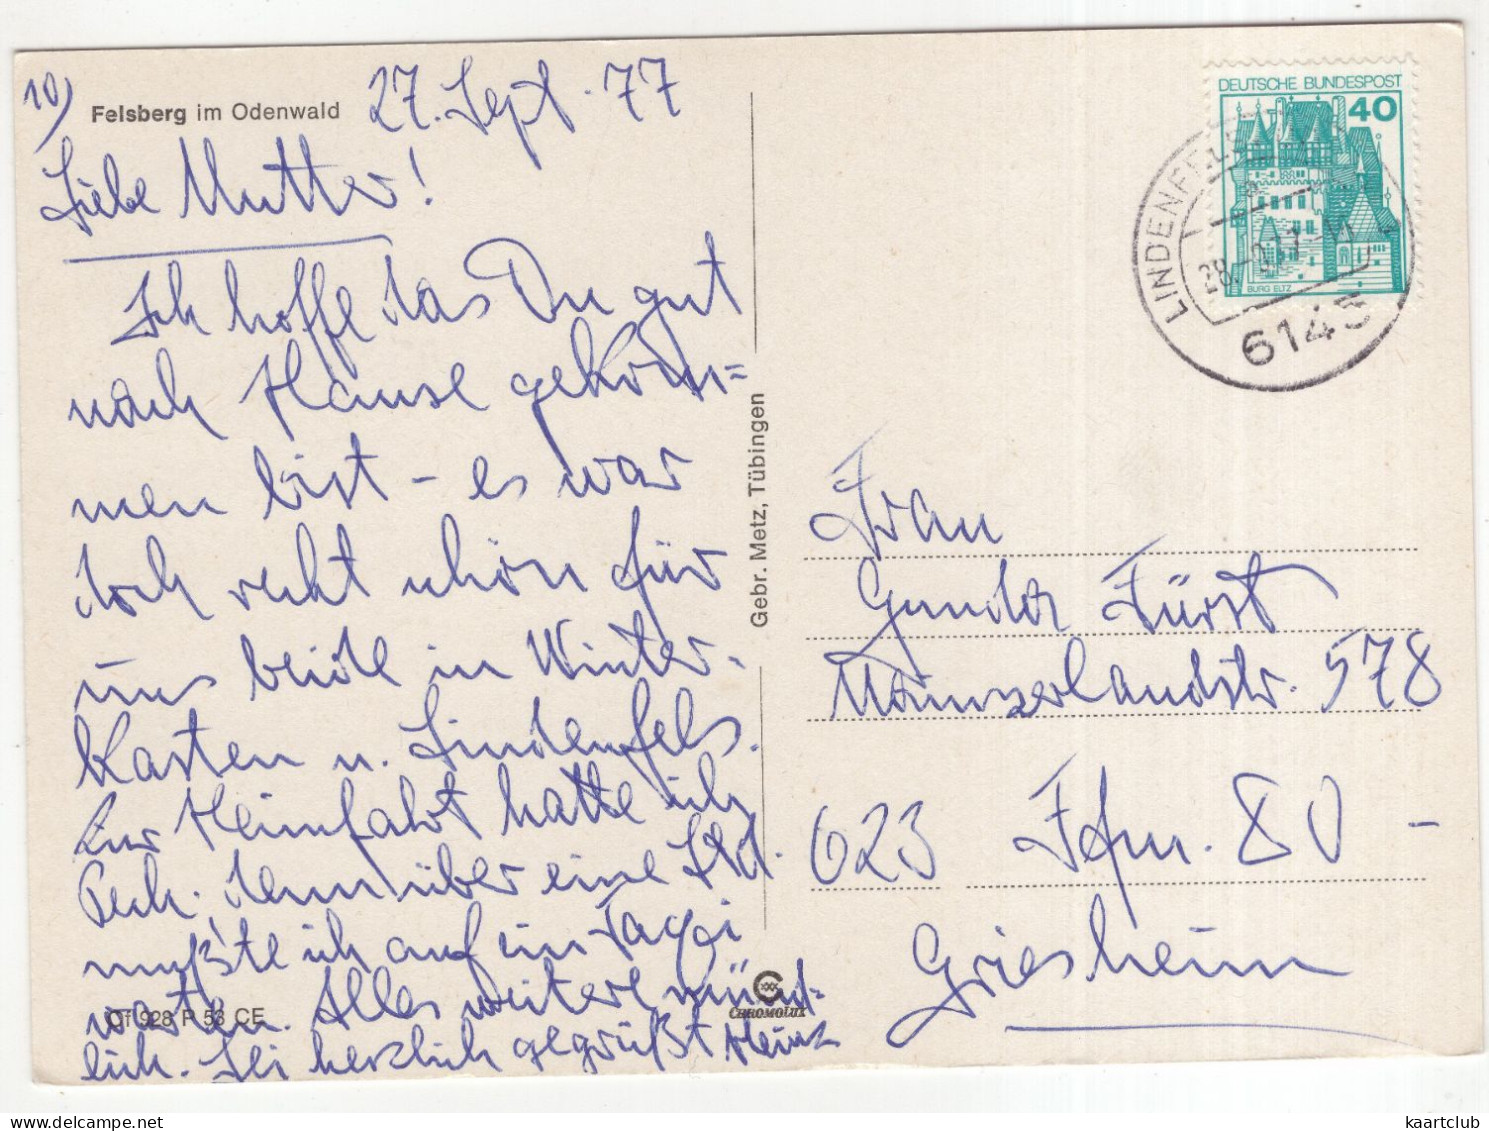 10)
Felsberg im Odenwald
27. Sept. 77
Liebe Mutter!
Ich hoffe das Du gut
nach Hause gekom=
men bist - es war
doch recht schön für
uns beide in Winter-
Kasten u. Lindenfels.
Zur Heimfahrt hatte ich
Pech. denn über eine Std.
mußte ich auf ein Taxi
warten. Alles weitere münd=
lich. Sei herzlich gegrüßt Heinz
Gf 928 P 53 CE
Gebr. Metz, Tübingen
CHROMOLUX
DEUTSCHE BUNDESPOST
40
BURG ELTZ
LINDENFELS
28.-9.77-
6145
Frau
Gunda Fürst
Mainzerlandstr. 578
623 Ffm. 80 -
Griesheim
kaartclub